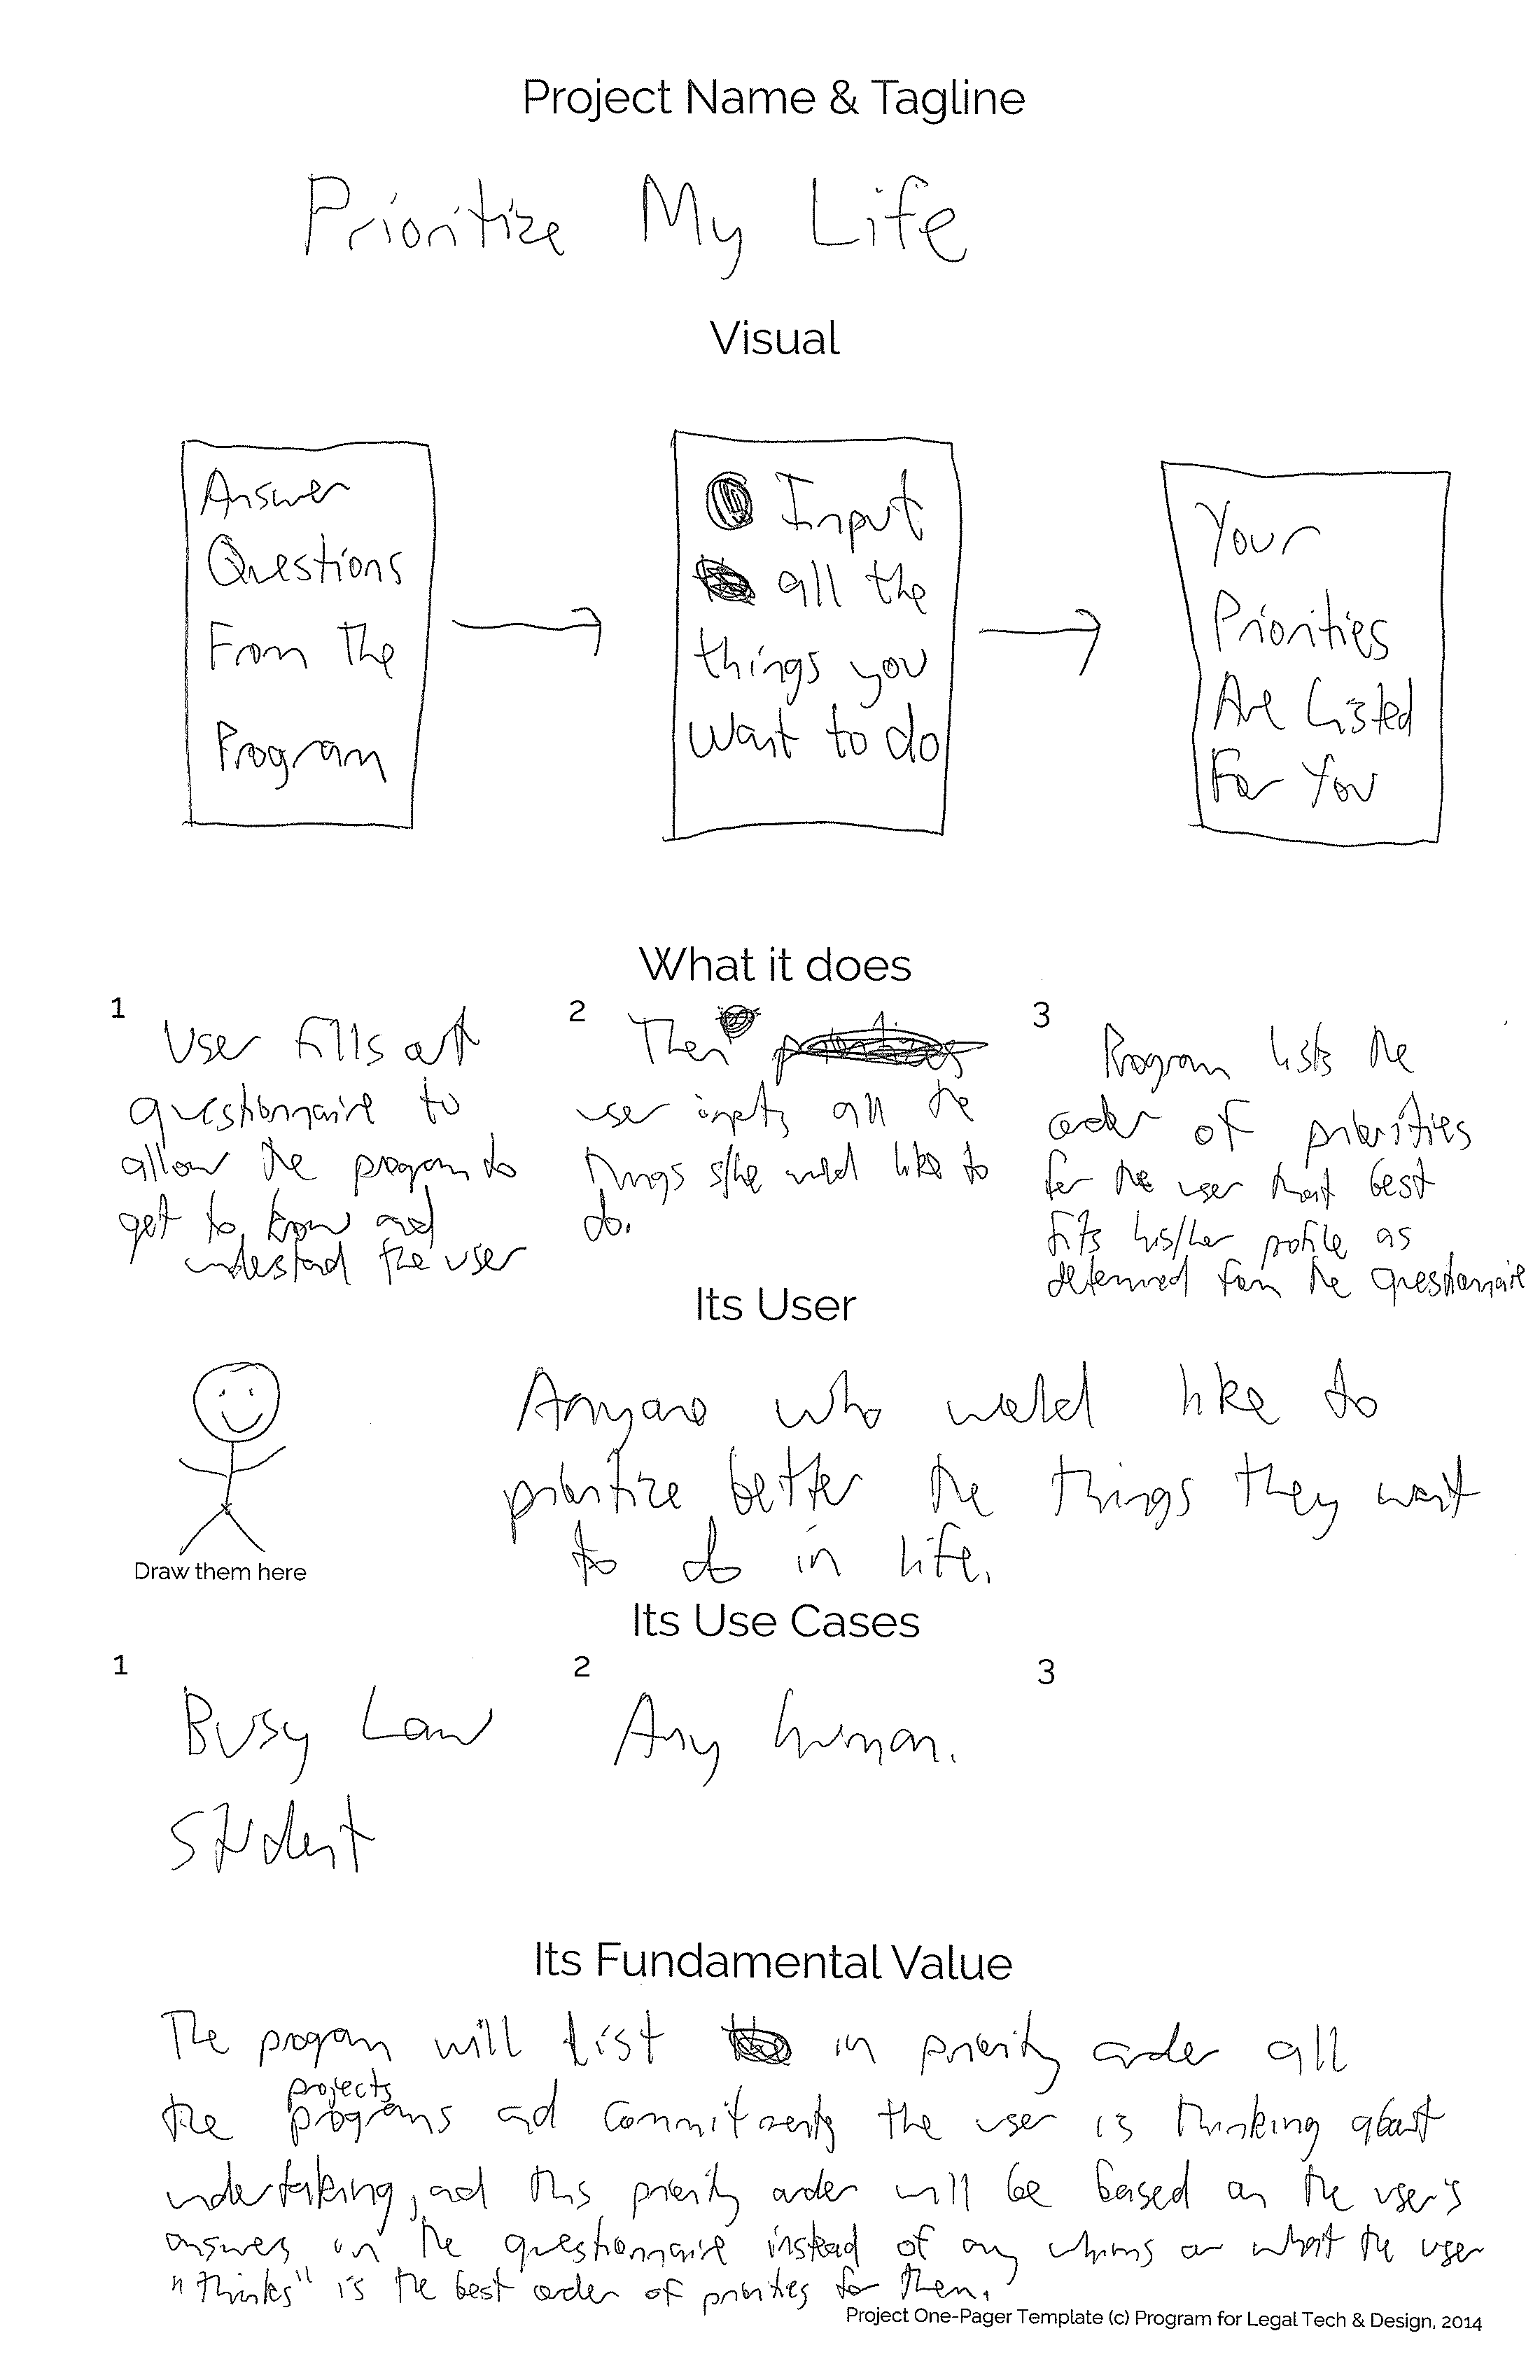 Project Name & Tagline
Prioritize My Life
Visual
Answer
Questions
From The
Program
Input
all the
things you
want to do
Your
Priorities
Are Listed
For You
What it does
1
User fills out
questionnaire to
allow the program to
get to know and
understand the user
2
Then
user inputs all the
things s/he would like to
do.
3
Program lists the
order of priorities
for the user that best
fits his/her profile as
determined from the questionnaire
Its User
Draw them here
Anyone who would like to
prioritize better the things they want
to do in life.
Its Use Cases
1
Busy Law
Student
2
Any human.
3
Its Fundamental Value
The program will list in priority order all
projects
the programs and commitments the user is thinking about
undertaking, and this priority order will be based on the user's
answers on the questionnaire instead of any whims or what the user
"thinks" is the best order of priorities for them.
Project One-Pager Template (c) Program for Legal Tech & Design, 2014